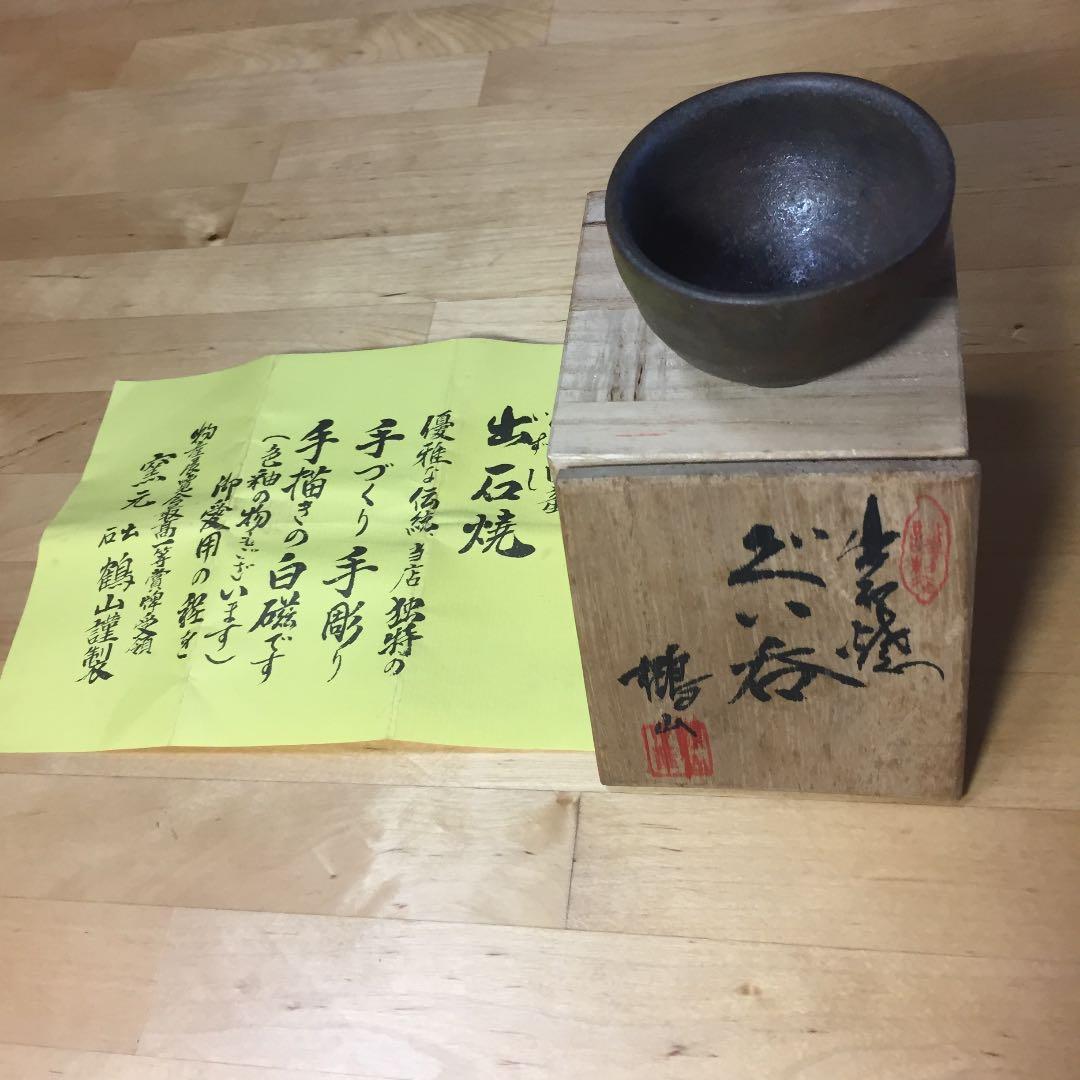 出石焼
いずし
優雅な伝統 当店 独特の
手づくり 手彫り
手描きの 白磁です
(色釉の物もございます)
御愛用の程を
物産展覧会最高一等賞牌受領
窯元 鶴山謹製
出石焼
ぐい呑
鶴山